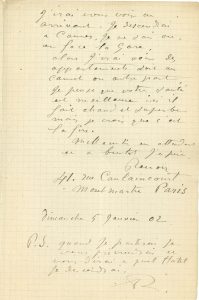 J'irai vous voir en
arrivant. Je descendrai
à Cannes, je ne sais où,
en face la Gare,
alors j'irai voir des
appartements soit au
cannet ou autre part.
Je pense que votre santé
est meilleure ici il
fait chaud et superbe
mais je crois que c'est
la fin.
Mille amitiés en attendant
et a bientot j'espère
Renoir
41. rue Caulaincourt
Montmartre Paris
Dimanche 5 Janvier 02
P.S. quand je partirai je
vous préviendrai et
vous dirai à quel hotel
je descendrai
R